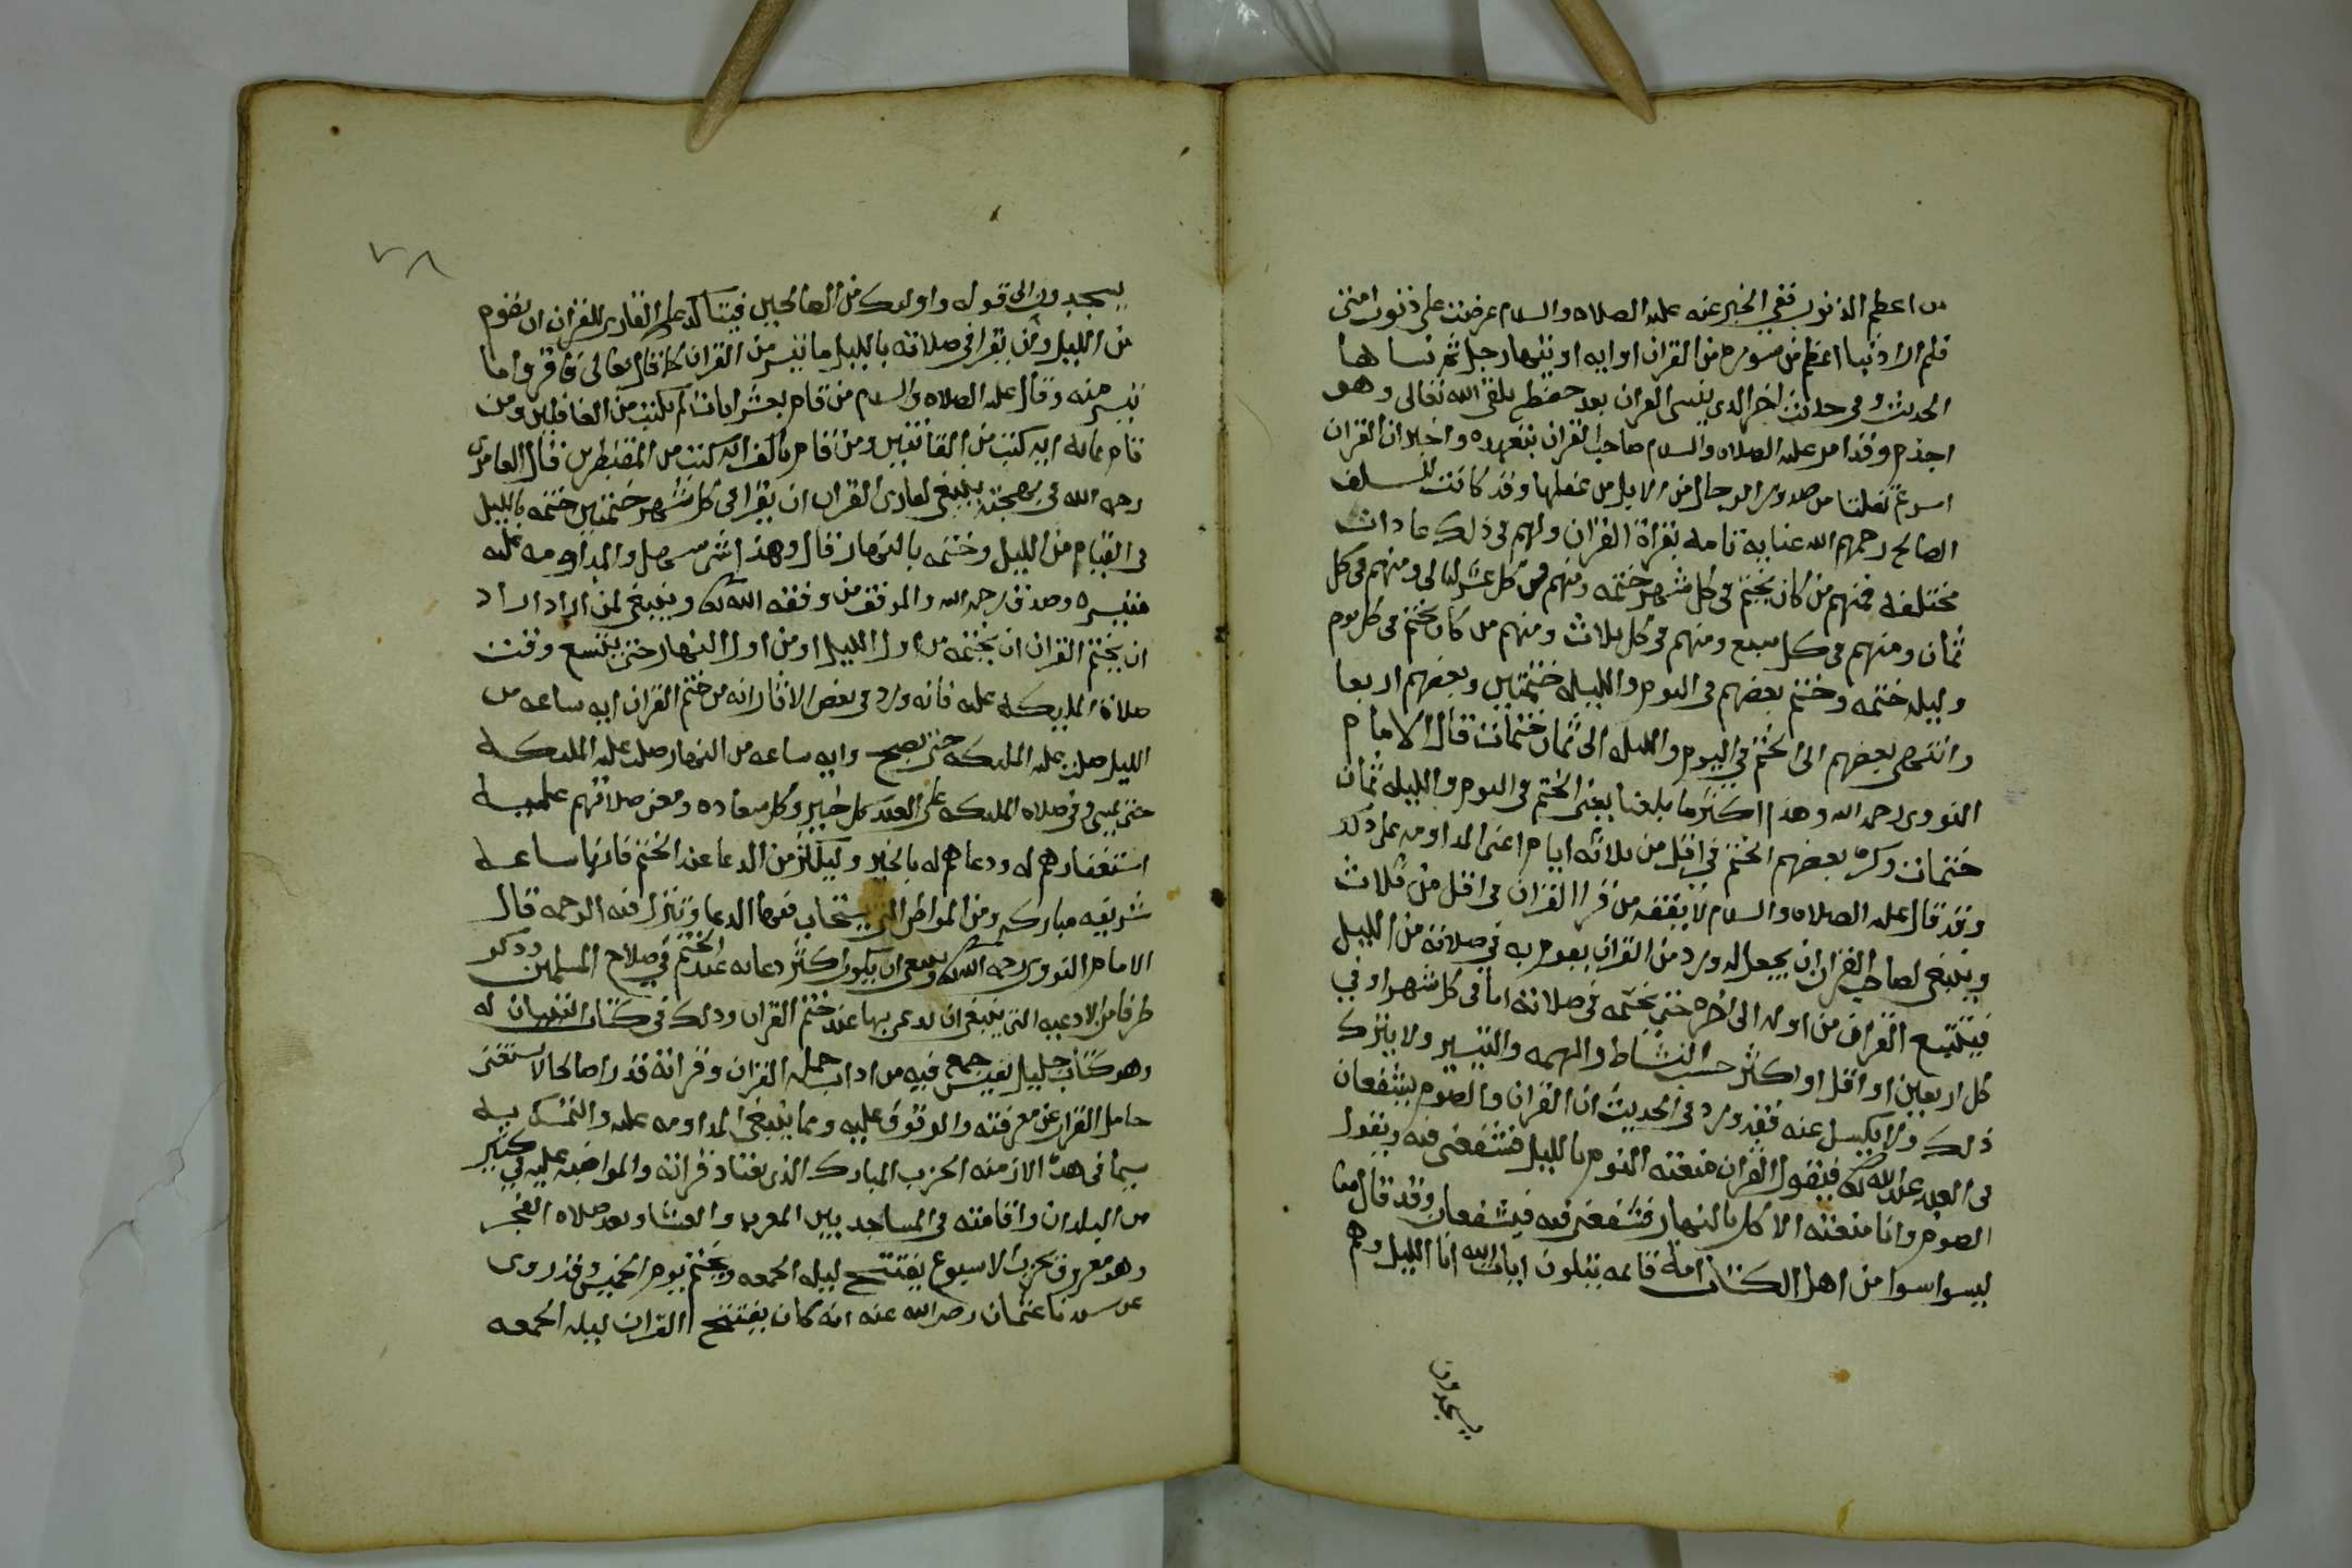 من اعظم الذنوب ففي الخبر عنه عليه الصلاه والسلام عرضت على ذنوب امتى
فلم ار ذنبا اعظم من سوره من القران او ايه اوتيها رجل ثم نساها
الحديث وفى حديث اخر الذى ينسى القران بعد حفظه يلقى الله تعالى وهو
اجذم وقد امر عليه الصلاه والسلام صاحب القران بتعهده واخبر ان القران
اسرع تفلتا من صدور الرجال من الابل من عقلها وقد كانت للسلف
الصالح رحمهم الله عناية تامه بقراة القران ولهم فى ذلك عادات
مختلفه فمنهم من كان يختم فى كل شهر ختمه ومنهم فى كل عشر ليالى ومنهم فى كل
ثمان ومنهم فى كل سبع ومنهم فى كل ثلاث ومنهم من كان يختم فى كل يوم
وليله ختمه وختم بعضهم فى اليوم والليله ختمتين وبعضهم اربعا
وانتهى بعضهم الى الختم في اليوم والليله الى ثمان ختمات قال الامام
النووى رحمه الله وهذا اكثر ما بلغنا يعنى الختم فى اليوم والليله ثمان
ختمات وكره بعضهم الختم في اقل من ثلاثه ايام اعنى المداومه على ذلك
وقد قال عليه الصلاه والسلام لا يفقه من قرا القران فى اقل من ثلاث
وينبغى لصاحب القران ان يجعل له ورد من القران يقوم به في صلاته من الليل
فيتتبع القران من اوله الى اخره حتى يختمه فى صلاته اما فى كل شهر او في
كل اربعين او اقل او اكثر حسب النشاط والهمه والتيسير ولا يترك
ذلك ولا يكسل عنه فقد ورد فى الحديث ان القران والصوم يشفعان
فى العبد عند الله تعالى فيقول القران منعته النوم بالليل فشفعنى فيه ويقول
الصوم وانا منعته الاكل بالنهار فشفعنى فيه فيشفعان وقد قال تعالى
ليسوا سوا من اهل الكتاب امة قائمه يتلون ايات الله انا الليل وهم
يسجدون
٧٨
يسجدون الى قوله واولئك من الصالحين فيتاكد على القارى للقران ان يقوم
من الليل وان يقرا فى صلاته بالليل ما تيسر من القران كما قال تعالى فاقروا ما
تيسر منه وقال عليه الصلاه والسلام من قام بعشر ايات لم يكتب من الغافلين ومن
قام بمائه ايه كتب من القانتين ومن قام بالف ايه كتب من المقنطرين قال العامرى
رحمه الله فى بهجته ينبغى لقارى القران ان يقرا فى كل شهر ختمتين ختمه بالليل
فى القيام من الليل وختمه بالنهار قال وهذا شى سهل والمداومه عليه
متيسره وصدق رحمه الله والموفق من وفقه الله تعالى وينبغى لمن اراد اراد
ان يختم القران ان يختمه من اول الليل او من اول النهار حتى يتسع وقت
صلاة الملايكة عليه فانه ورد فى بعض الاثار انه من ختم القران ايه ساعه من
الليل صلت عليه الملائكه حتى يصبح وايه ساعه من النهار صلت عليه الملئكه
حتى يمسى وفي صلاه الملئكه على العبد كل خير وكل سعاده ومعنى صلاتهم عليه
استغفارهم له ودعاهم له بالخير وليكثر من الدعا عند الختم فانها ساعه
شريفه مباركه ومن المواطن التى يستجاب فيها الدعا وتنزل فيه الرحمه قال
الامام النووى رحمه الله تعالى وينبغى ان يكون اكثر دعائه عند الختم في صلاح المسلمين وذكر
طرفا من الادعيه التى ينبغى ان يدعى بها عند ختم القران وذلك فى كتاب التبيان له
وهو كتاب جليل نفيس جمع فيه من اداب حملة القران وقراته قدرا صالحا لا يستغنى
حامل القران عن معرفته والوقوف عليه ومما ينبغى المداومه عليه والتمسك به
سيما فى هذه الازمنه الحزب المبارك الذى يعتاد قراته والمواظبه عليه في كثير
من البلدان واقامته فى المساجد بين المغرب والعشا وبعد صلاه الفجر
وهو معروف بحزب الاسبوع يفتتح ليله الجمعه ويختم يوم الخميس وقد روى
عن سيدنا عثمان رضى الله عنه انه كان يفتتح القران ليله الجمعه